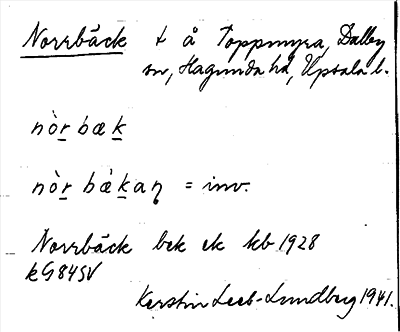 Norrbäck t å Toppmyra, Dalby
sn, Hagunda hd, Upsala l.
nòr bæk
nòr bæ̀kaη = inv.
Norrbäck bek ek kb 1928
kG84SV
Kerstin Leeb-Lundberg 1941.